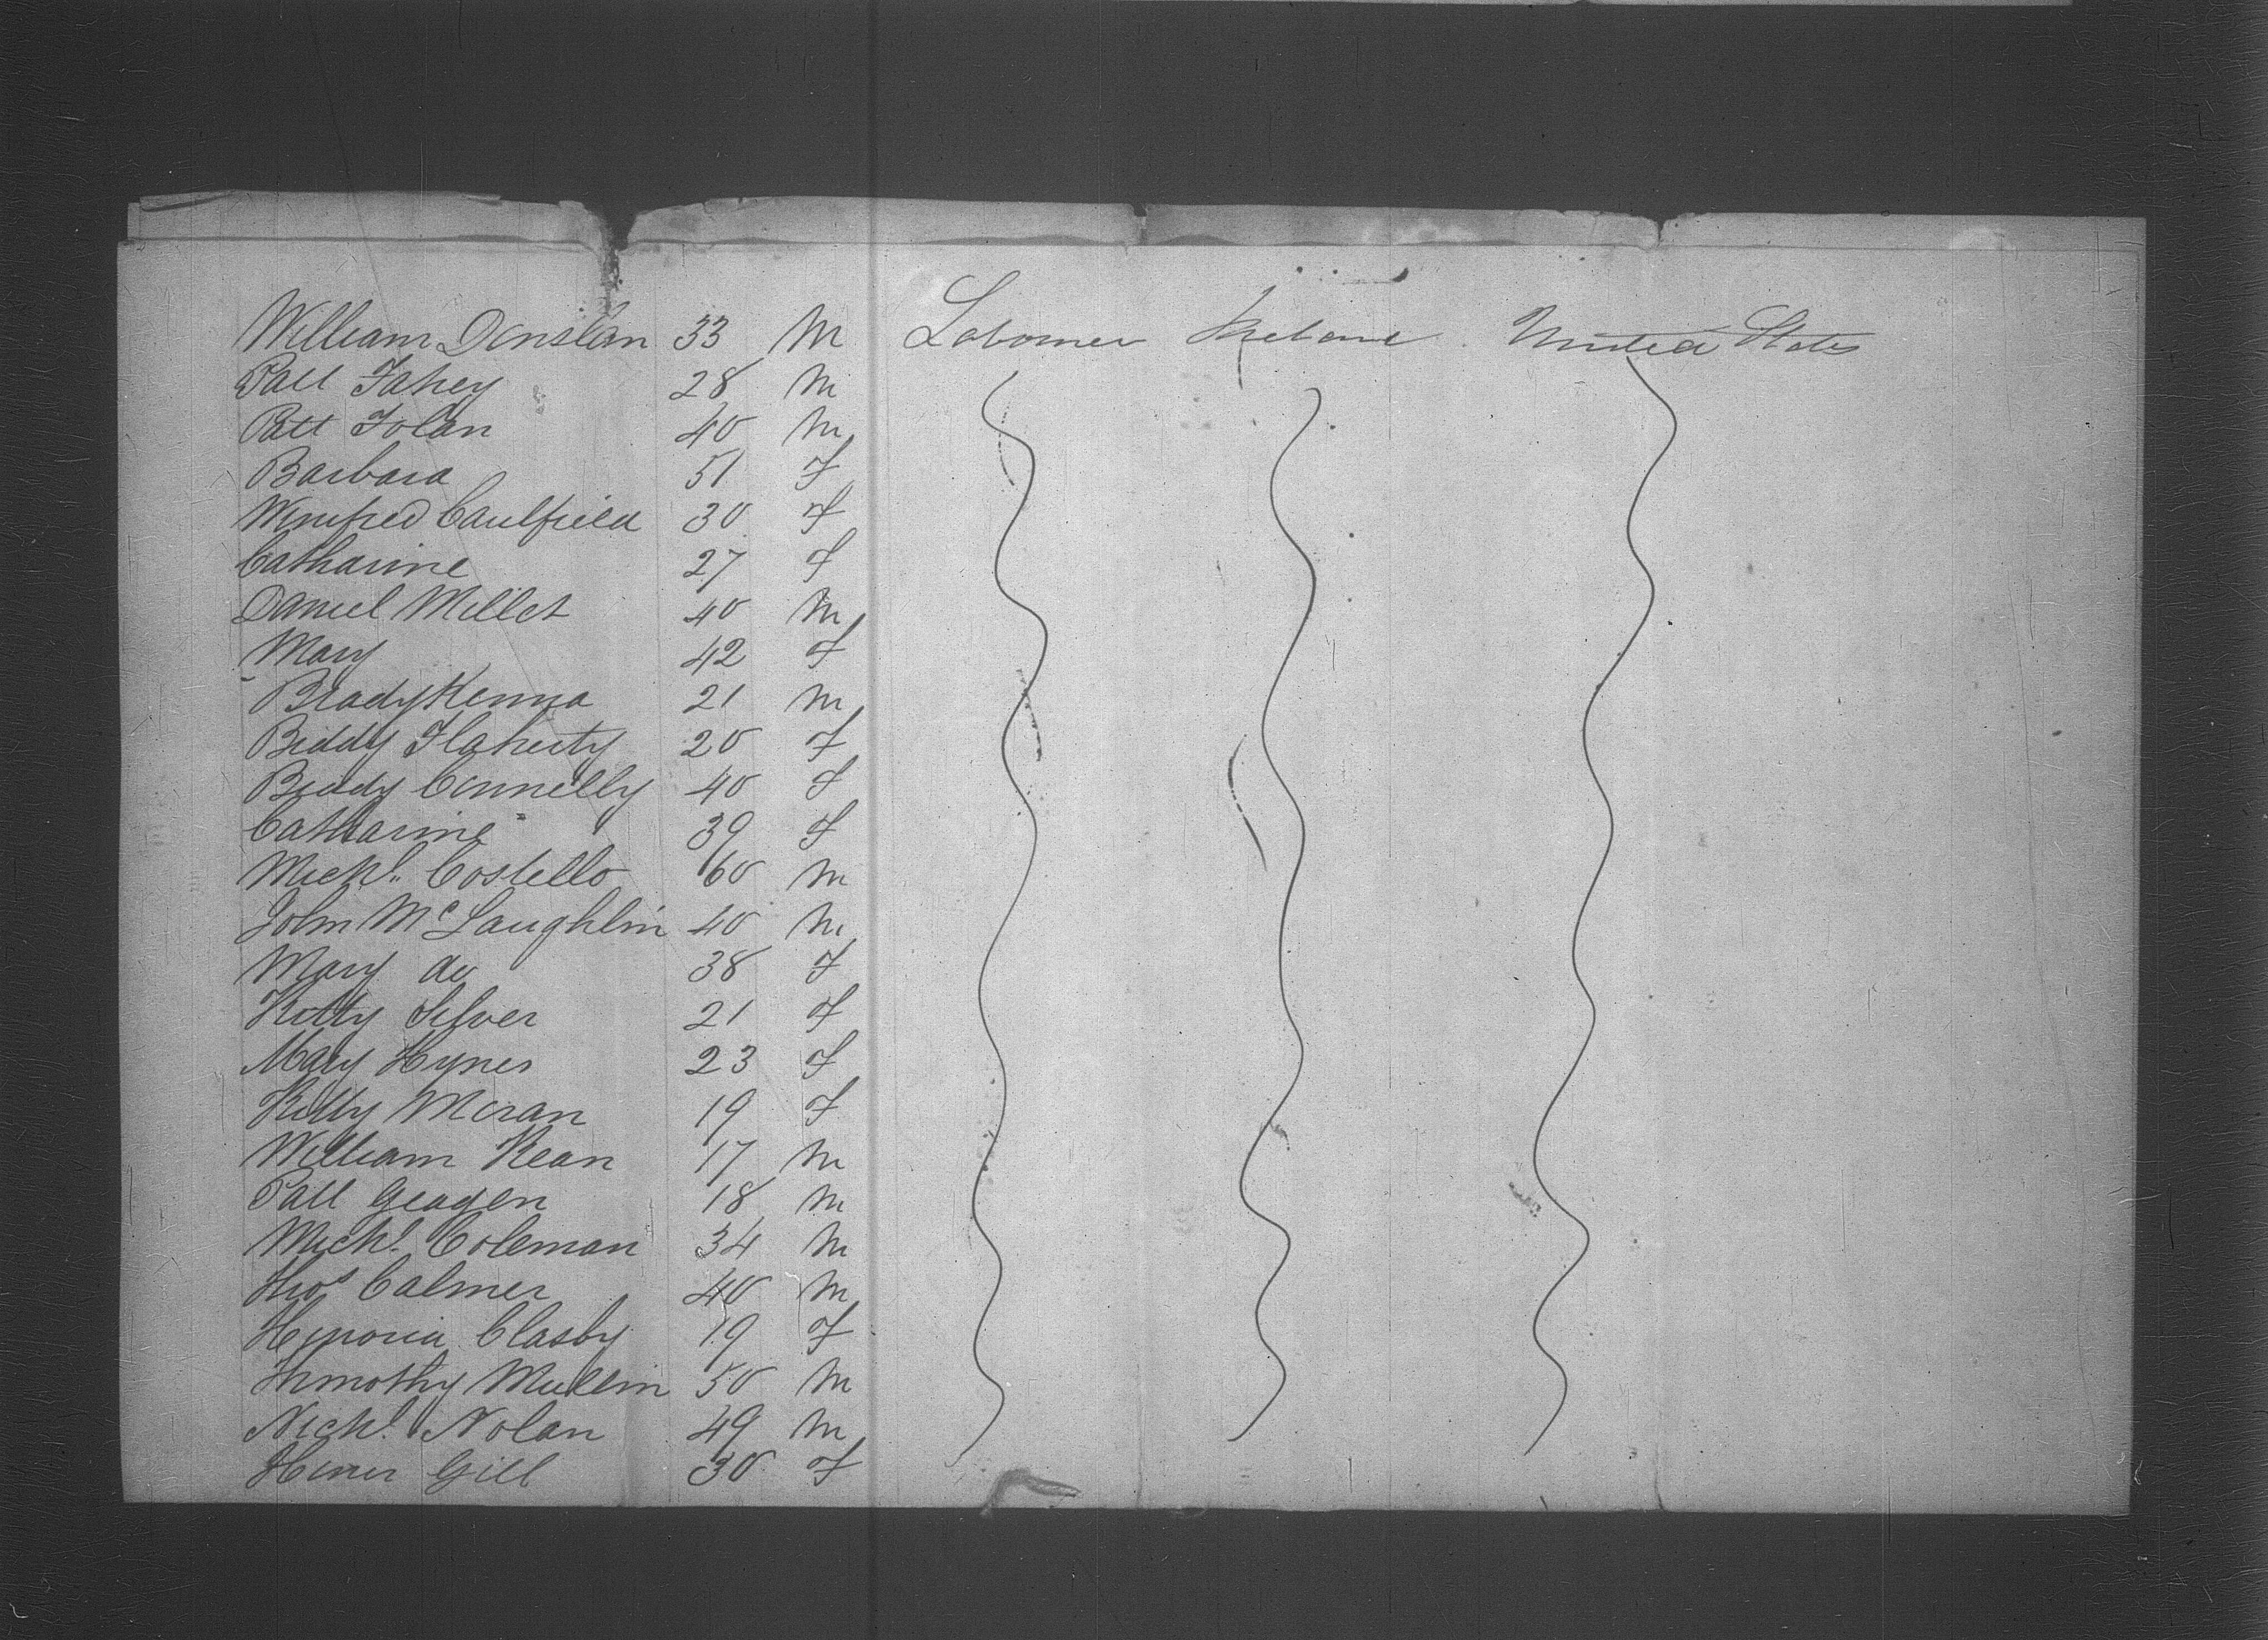 William Donslan 33 M Labourer Ireland United States
Patt Fahey 28 M
Patt Folan 40 M
Barbara 51 F
Winifred Caulfield 30 F
Catharine 27 F
Daniel Millet 40 M
Mary 42 F
Brady Kenna 21 M
Biddy Flaherty 20 F
Biddy Connelly 40 F
Catharine " 39 F
Michl. Costello 60 M
John McLaughlin 40 M
Mary do 38 F
Kitty Silver 21 F
Mary Hynes 23 F
Kitty Moran 19 F
William Kean 17 M
Patt Geagen 18 M
Michl. Coleman 34 M
Thos Calmer 40 M
Honoria Clasby 19 F
Timothy Mullin 50 M
Nichl. Nolan 49 M
Honor Gill 30 F